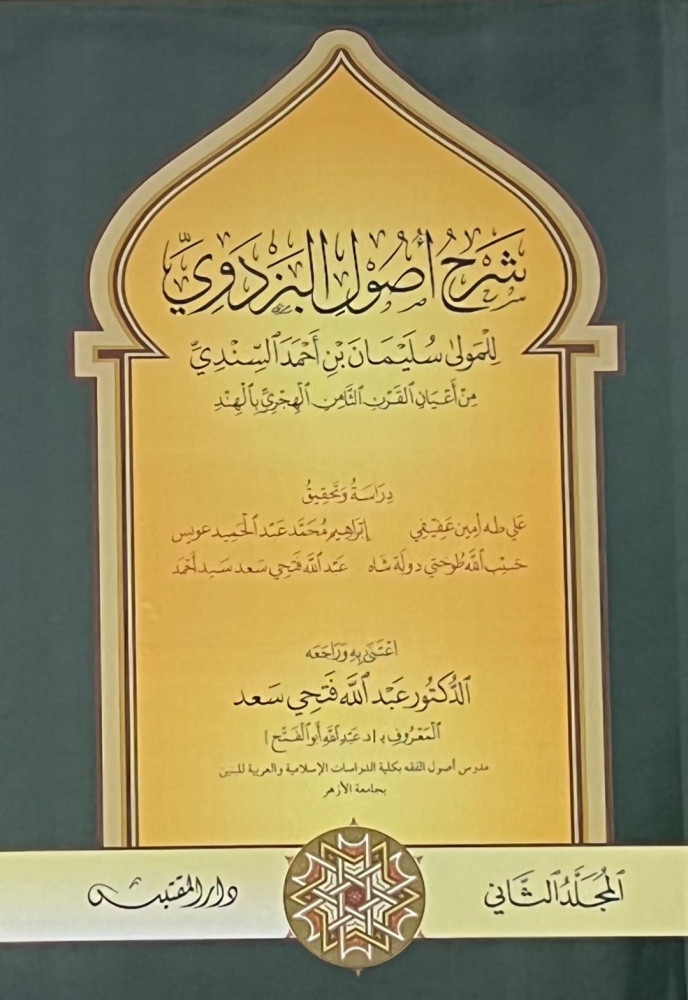 شَرْحُ أُصُولِ البَزْدَوِيِّ
لِلمَولىٰ سُلَيْمَانَ بْنِ أَحْمَدَ السِّنْدِيِّ
مِنْ أَعْيَانِ القَرْنِ الثَّامِنِ الهِجْرِيِّ بِالهِنْدِ
دِرَاسَةُ وَتَحْقِيقُ
علي طه أمين عفيفي إبراهيم محمد عبد الحميد عويس
حبيب الله طوختي دولة شاه عبد الله فتحي سعد سيد أحمد
اعْتَنَى بِهِ وَرَاجَعَهُ
الدُّكتُور عَبْدُ اللَّه فَتْحِي سَعد
المَعْرُوفُ بـ (د عبد الله أبو الفَتْح)
مدرس أصول الفقه بكلية الدراسات الإسلامية والعربية للبنين
بجامعة الأزهر
المُجَلَّدُ الثَّانِي
دار المقتبس